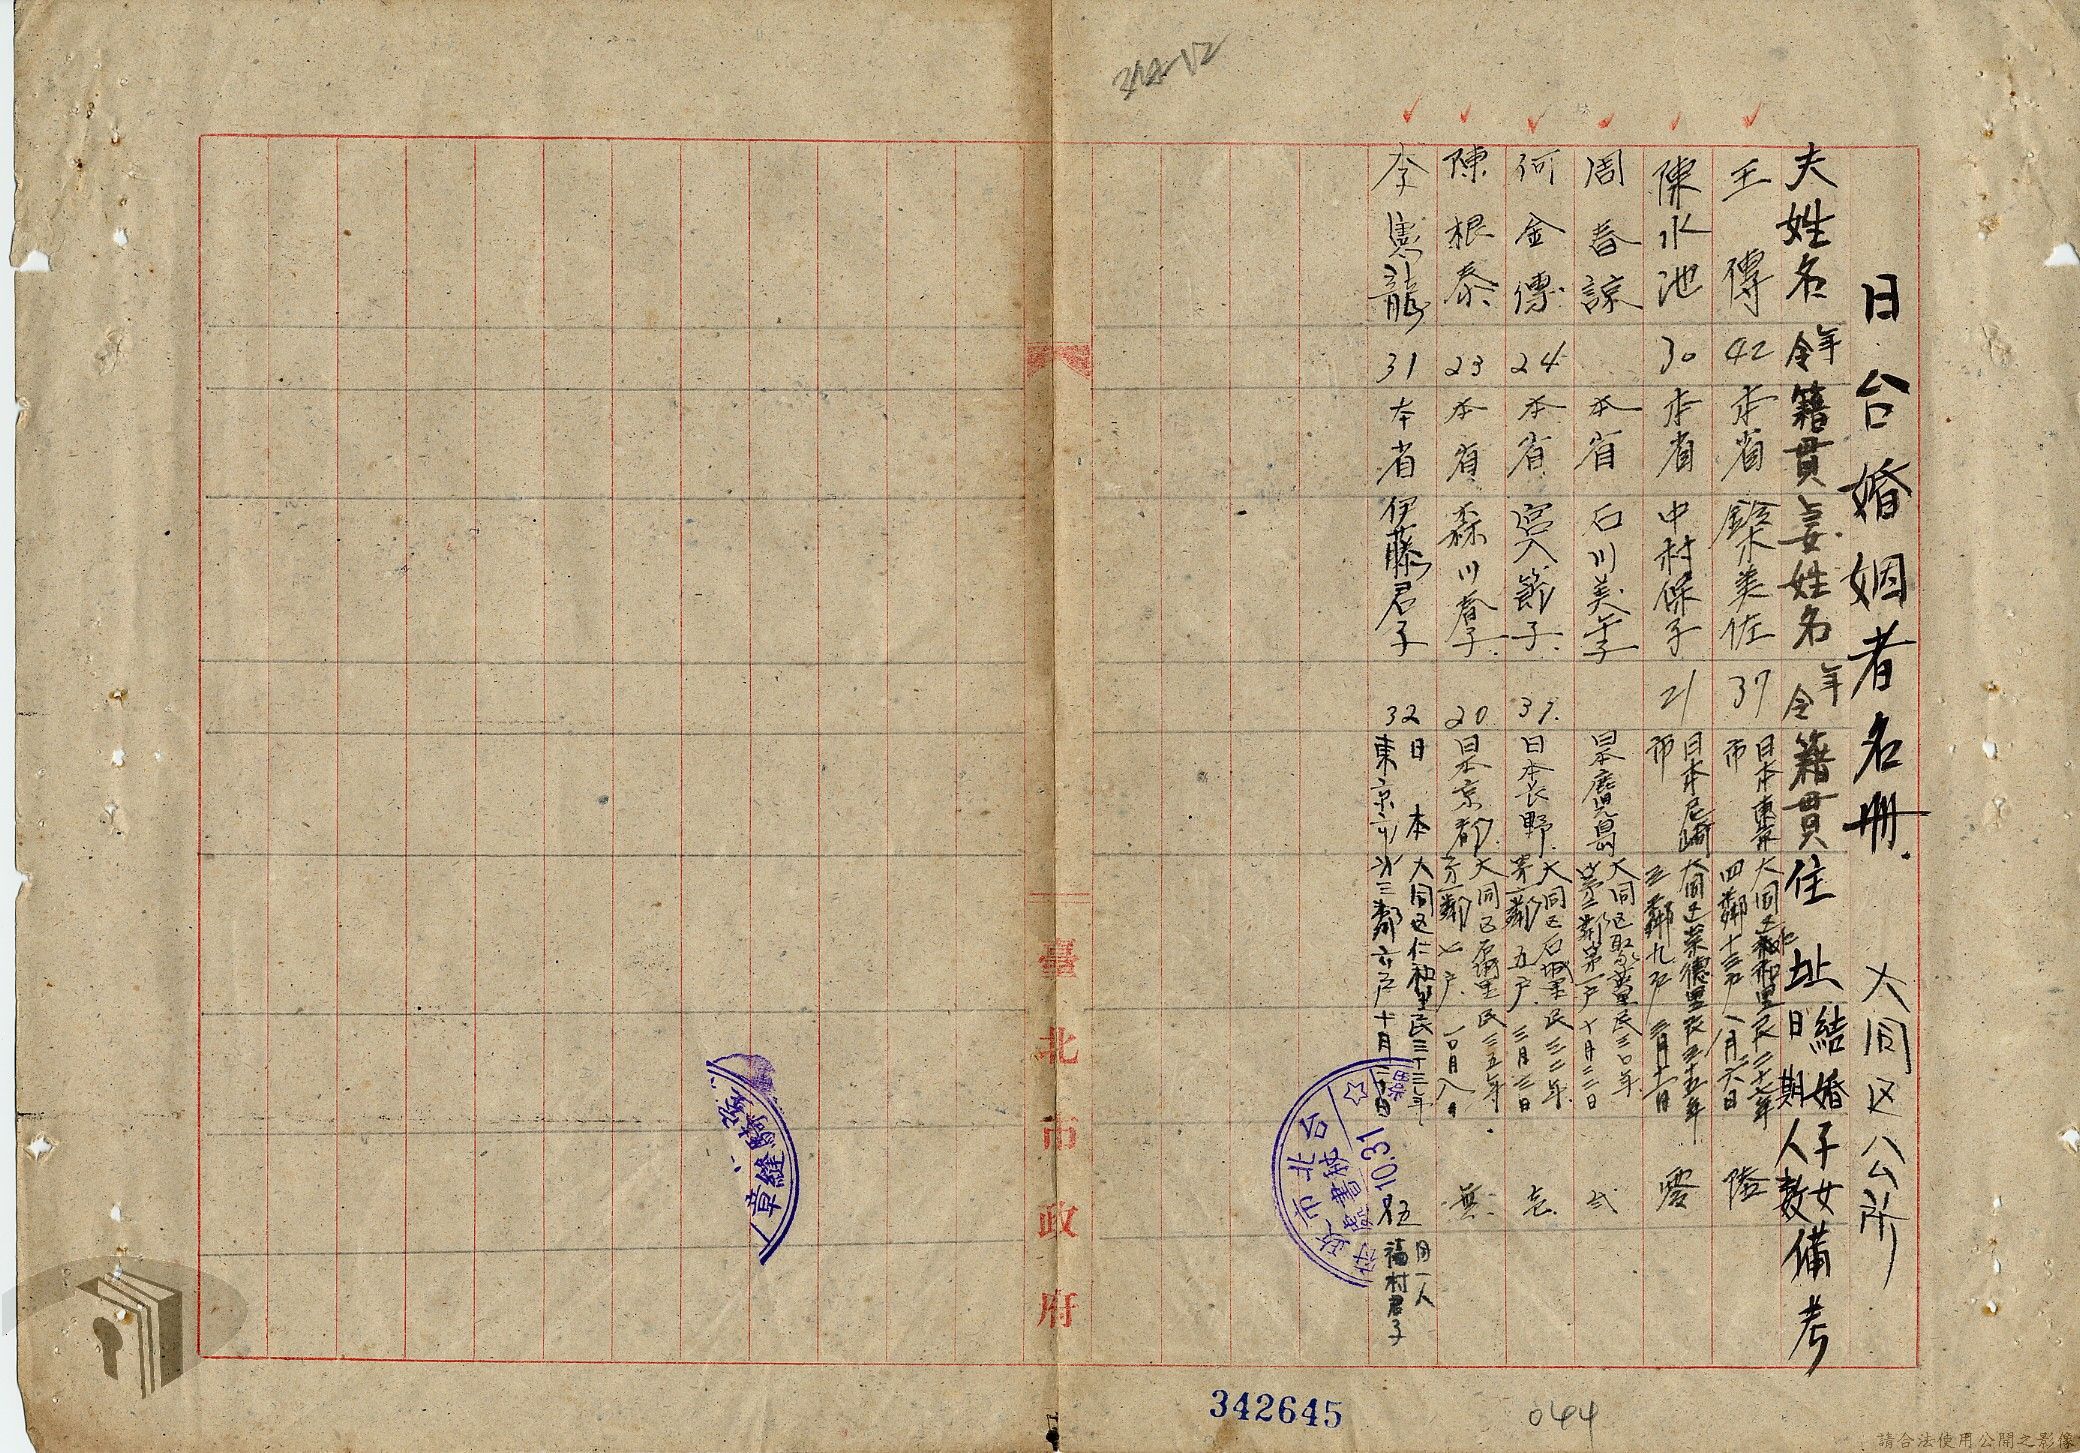 日台婚姻者名冊. 大同区公所
夫姓名 年令 籍貫 妻姓名 年令 籍貫 住址 結婚日期 子女人数 備考
王傳 42 本省 鈴木美佐 37 日本東京市 大同区 和里 四鄰十三戸 民二十七年八月六日 陸
陳水池 30 本省 中村保子 21 日本尼崎市 大同区榮德里 五鄰九戸 民三十五年 零
周春諒 本省 石川美年子 日本鹿児島 大同区聚葉里 第二鄰第一戸 民三〇年十月三日 弍
何金傳 24 本省 宮入節子 37. 日本長野. 大同区石城里 第一鄰五戸 民三二年三月三日
陳根泰 23 本省 森川春子 20 日本京都 大同区 里 七戸. 民三五年 無.
李憲龍 31 本省 伊藤君子 32 日本東京市 大同区仁和里 第三鄰六戸 民三十三年十月 伍 同一人福村君子
臺北市政府
台北市政府秘書處
10.31
縫章
342645
044
請合法使用公開之影像